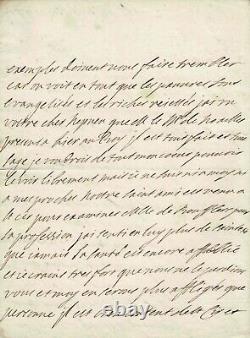 exemples doivent nous faire trembler
car on voit en tout que les pauvres sont
evangelisés et les riches rejettés jai vu
vostre cher nepveu que Mr le Mal de noailles
presenta hier au Roy jl est tres fait et tres
sage je voudrois de tout mon coeur pouvoir
le voir librement mais ie ne suis ni a moy ni
a mes proches nostre saint ami est venu
icy pour examiner Mlle de pour
la profession jai senti en luy plus de saintete
que jamais la santé est encore affoiblie
et ie crains tres fort que nous ne le perdions
vous et moy en serons plus affligées que
personne jl est tres content de St Cyr et